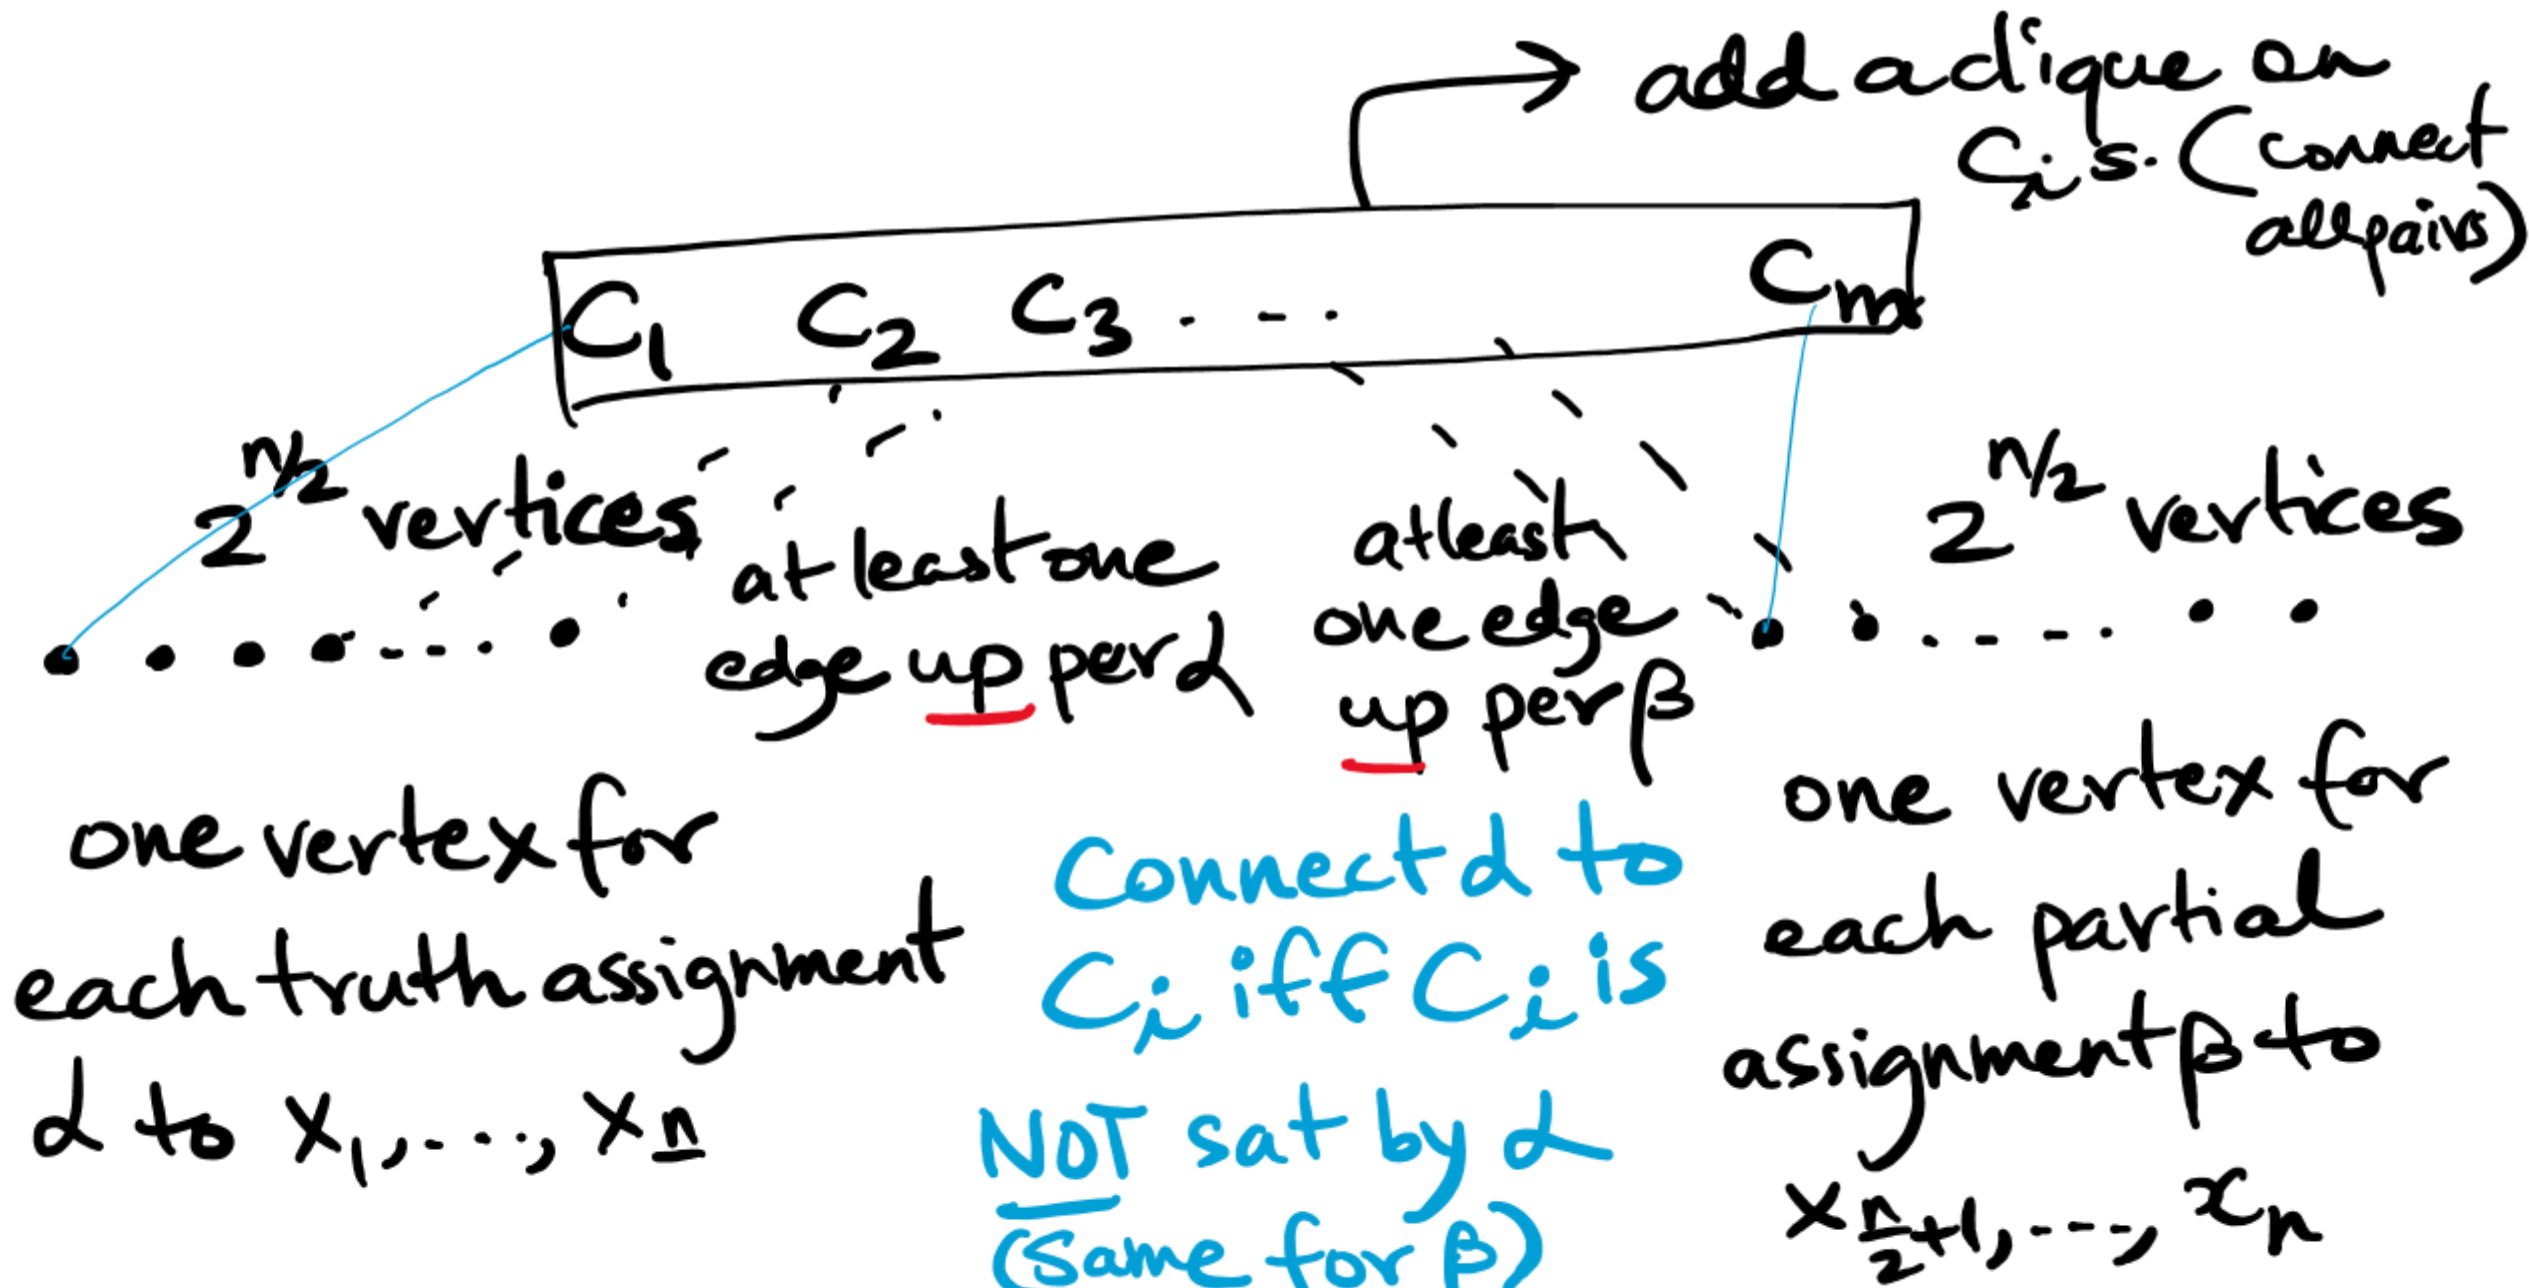 add a clique on
Cᵢs. (connect
all pairs)
C₁ C₂ C₃ . - . Cₘ
2^(n/2) vertices
at least one
edge up per α
atleast
one edge
up per β
2^(n/2) vertices
one vertex for
each truth assignment
α to x₁, . . ., x_n
Connect α to
Cᵢ iff Cᵢ is
NOT sat by α
(Same for β)
one vertex for
each partial
assignment β to
x_(n/2+1), . - -, x_n